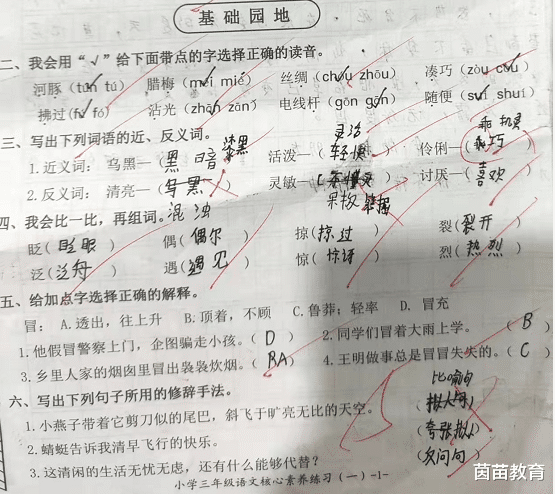 基础园地
二、我会用“√”给下面带点的字选择正确的读音。
河豚(tún tú) 腊梅(méi mié) 丝绸(chóu zhōu) 凑巧(zòu còu)
拂过(fú fó) 沾光(zhān zān) 电线杆(gōn gān) 随便(suí shuí)
三、写出下列词语的近、反义词。
漆黑 灵活 乖 机灵
1.近义词: 乌黑—(黑暗) 活泼—(轻快) 伶俐—(乖巧)
2.反义词: 清亮—(乌黑) 灵敏—( ) 讨厌—(喜欢)
混浊 呆板
四、我会比一比,再组词。
眨(眨眼) 偶(偶尔) 掠(掠过) 裂(裂开)
泛(泛舟) 遇(遇见) 惊(惊讶) 烈(热烈)
五、给加点字选择正确的解释。
冒: A.透出,往上升 B.顶着,不顾 C.鲁莽;轻率 D.冒充
1.他假冒警察上门,企图骗走小孩。(D) 2.同学们冒着大雨上学。(B)
3.乡里人家的烟囱里冒出袅袅炊烟。(A) 4.王明做事总是冒冒失失的。(C)
六、写出下列句子所用的修辞手法。
比喻句
1.小燕子带着它剪刀似的尾巴,斜飞于旷亮无比的天空。(拟人句)
2.蜻蜓告诉我清早飞行的快乐。(夸张拟人)
3.这清闲的生活无忧无虑,还有什么能够代替?(反问句)
小学三年级语文核心素养练习(一)-1-
茵茵教育